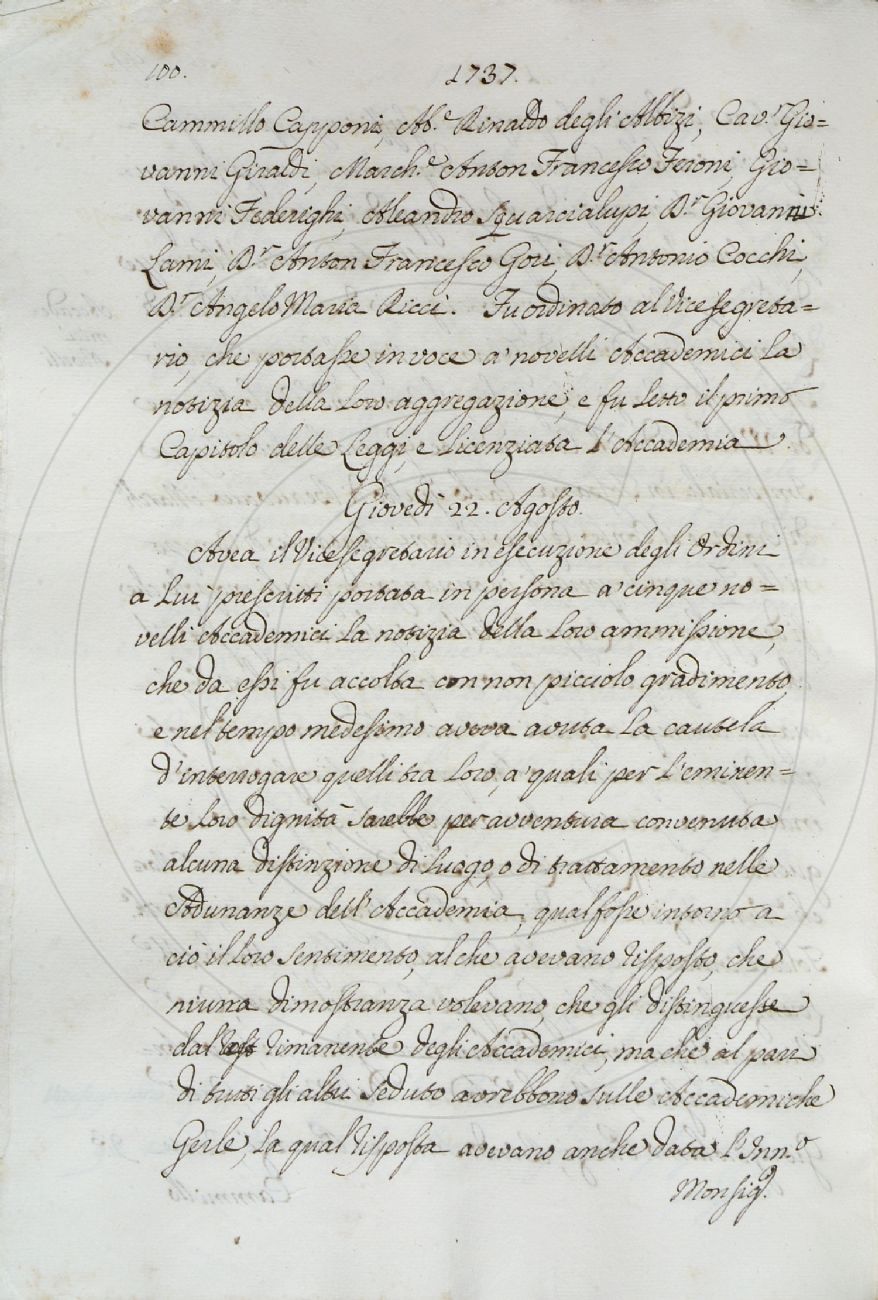 100. 1737.
Cammillo Capponi, Ab.e Rinaldo degli Albizi, Cav.r Gio=
vanni Giraldi, March.e Anton Francesco Feroni, Gio=
vanni Federighi, Aleandro Squarcialupi, D.r Giovanni
Lami, D.r Anton Francesco Gori, D.r Antonio Cocchi,
D.r Angelo Maria Ricci. Fu ordinato al Vicesegreta=
rio, che portasse in voce a' novelli Accademici la
notizia della loro aggregazione, e fu letto il primo
Capitolo delle Leggi, e licenziata l'Accademia.
Giovedì 22. Agosto.
Avea il Vicesegretario in esecuzione degli Ordini
a lui prescritti portata in persona a' cinque no=
velli Accademici la notizia della loro ammissione,
che da essi fu accolta con non picciolo gradimento,
e nel tempo medesimo aveva avuta la cautela
d'interrogare quelli tra loro, a' quali per l'eminen=
te loro dignità sarebbe per avventura convenuta
alcuna distinzione di luogo, o di trattamento nelle
Adunanze dell'Accademia, qual fosse intorno a
ciò il loro sentimento, al che avevano risposto, che
niuna dimostranza volevano, che gli distinguesse
dal rimanente degli Accademici, ma che al pari
di tutti gli altri seduto avrebbono sulle Accademiche
Gerle, la qual risposta avevano anche data l'Inn.o
Monsig.r